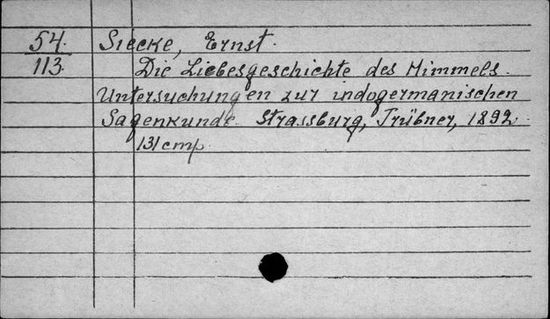 54. Siecke, Ernst.
113. Die Liebesgeschichte des Himmels.
Untersuchungen zur indogermanischen
Sagenkunde. Strassburg, Trübner, 1892.
131 стр.